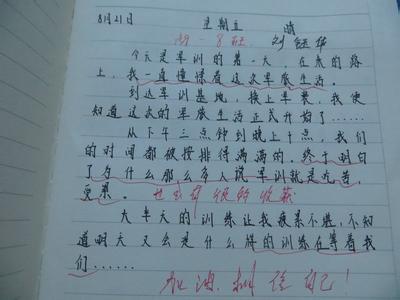 8月21日 星期五 晴
初一8班 刘钰华
今天是军训的第一天，在来的路
上，我一直憧憬着这次军旅生活。
到达军训基地，换上军装，我便
知道这次的军旅生活正式开始了……
从下午三点钟到晚上十点，我们
的时间都被安排得满满的。终于明白
了为什么那么多人说军训就是吃苦，
受累。也会有很多收获
大半天的训练让我疲累不堪，不知
道明天又会是什么样的训练在等着我
们……
加油，相信自己！